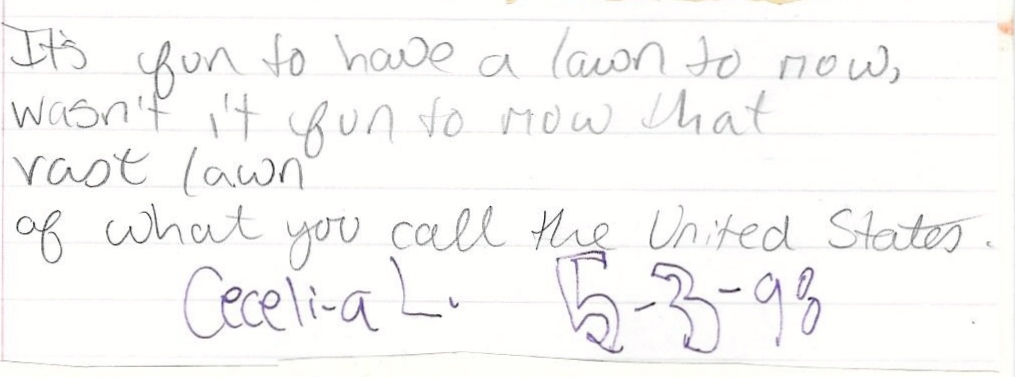 It's fun to have a lawn to mow,
wasn't it fun to mow that
vast lawn
of what you call the United States.
Ceceli-a L. 5-3-98